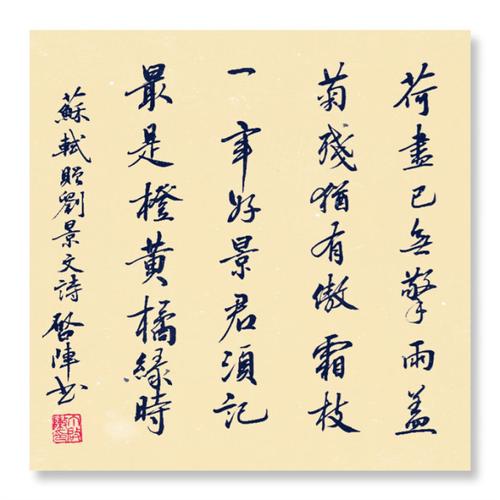 荷盡已無擎雨蓋
菊殘猶有傲霜枝
一年好景君須記
最是橙黃橘綠時
蘇軾贈劉景文詩 啓陣書